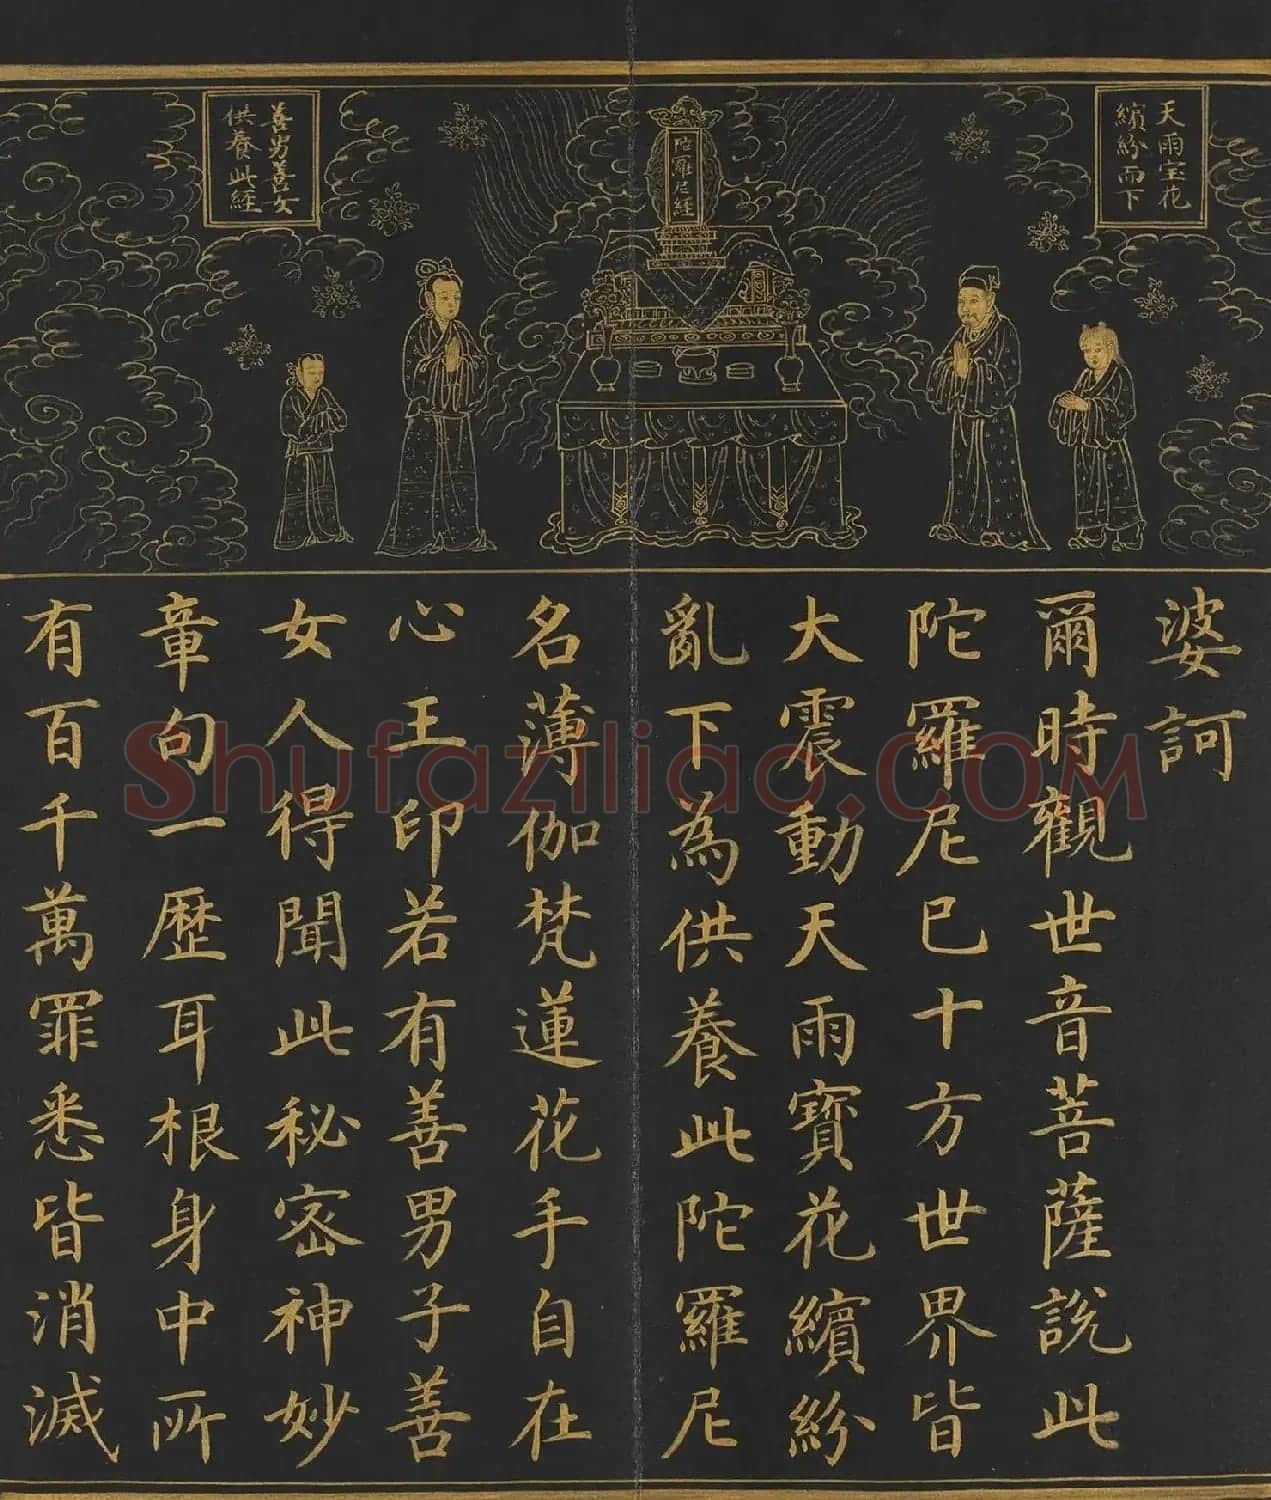 天雨宝花
繽紛而下
陀羅尼經
善男善女
供養此經
婆訶
爾時觀世音菩薩說此
陀羅尼已十方世界皆
大震動天雨寶花繽紛
亂下為供養此陀羅尼
名薄伽梵蓮花手自在
心王印若有善男子善
女人得聞此秘密神妙
章句一歷耳根身中所
有百千萬罪悉皆消滅
Shufaziliao.COM